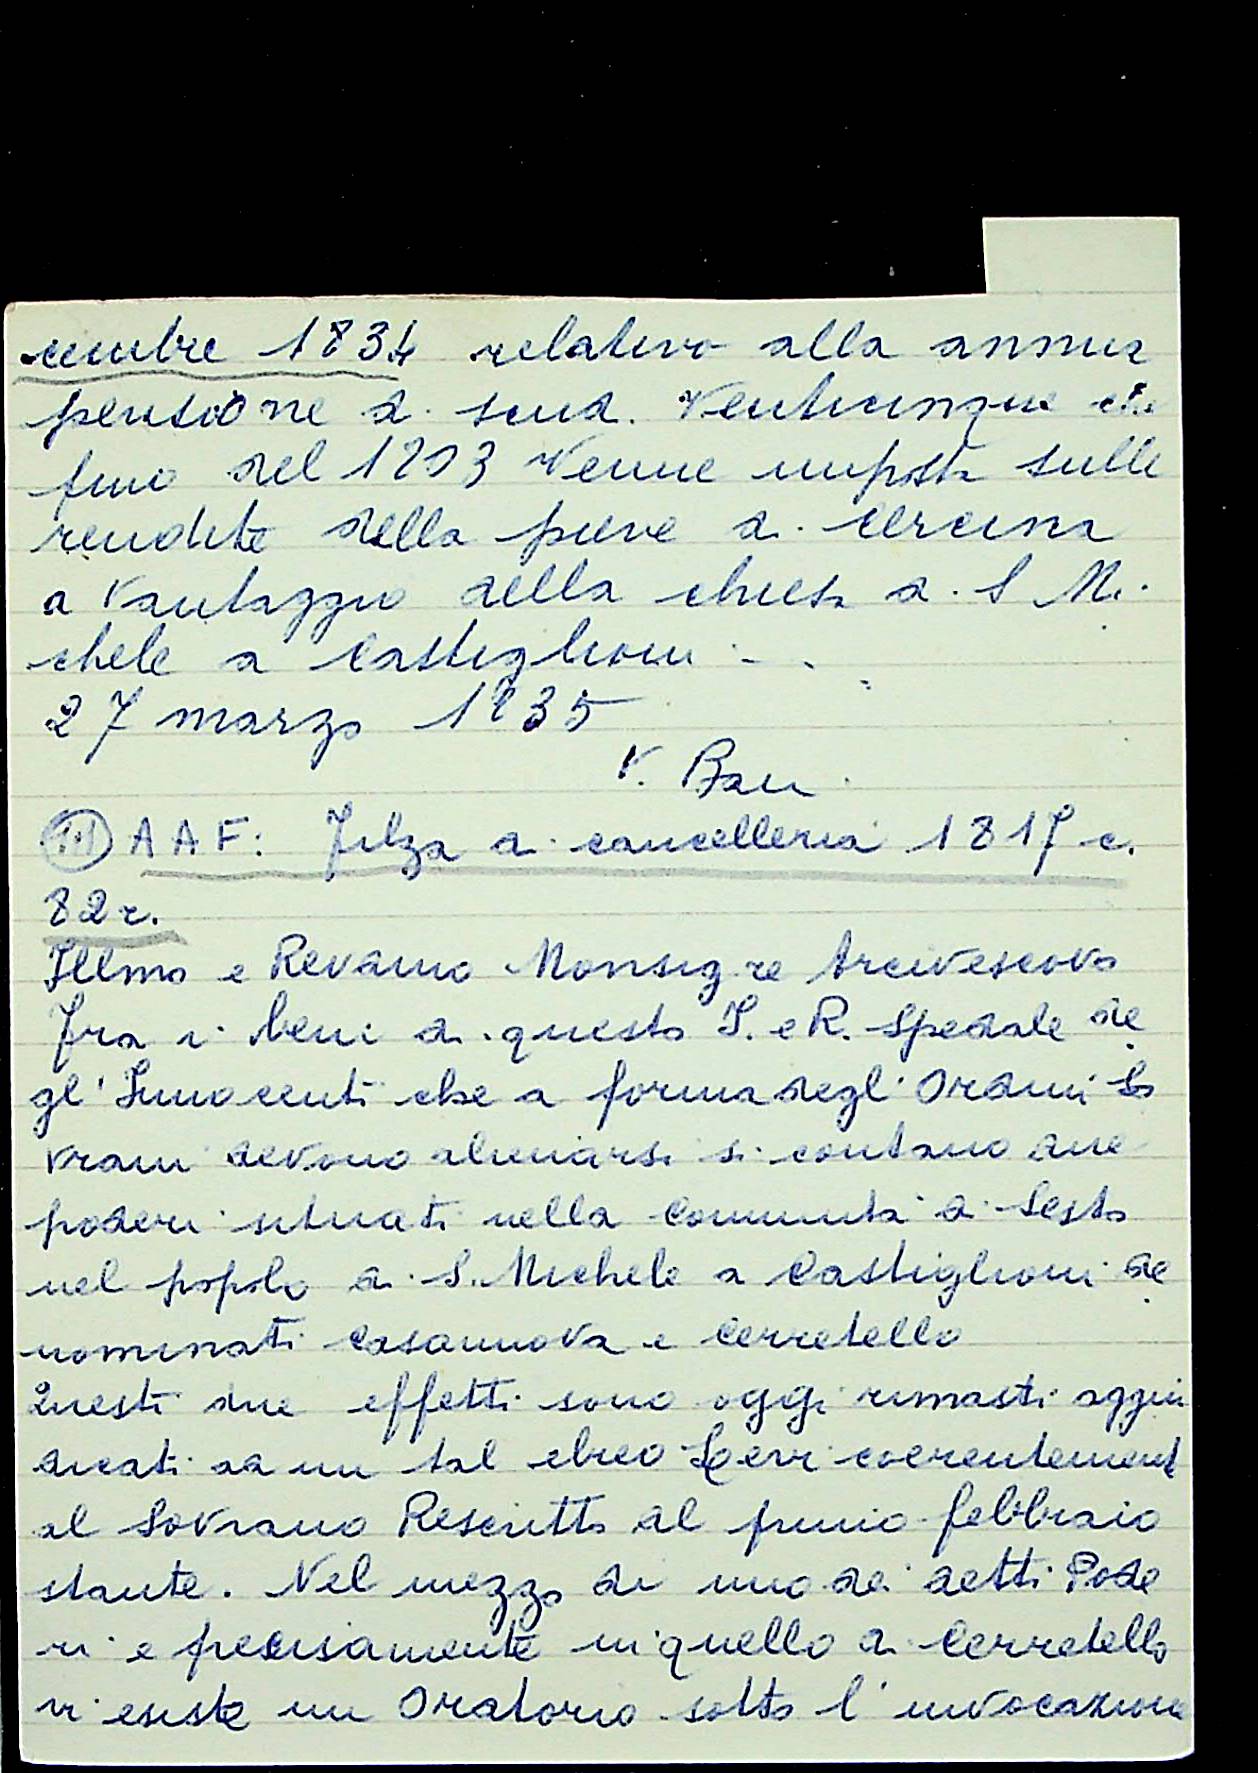 cembre 1834 relativo alla annua
pensione di scudi Venticinque che
fino del 1803 Venne imposta sulle
rendite della pieve di Cercina
a Vantaggio della chiesa di S Mi-
chele a Castiglioni - .
27 marzo 1835
V. Bau
(11) A A F: Filza di cancelleria 1817 c.
82 r.
Illmo e Revdmo Monsigre Arcivescovo
Fra i beni di questo I. e R. Spedale de
gl' Innocenti che a forma degl' Ordini So
vrani devono alienarsi si contano due
poderi situati nella Comunità di Sesto
nel popolo di S. Michele a Castiglioni de
nominati Casanuova e Cerretello
Questi due effetti sono oggi rimasti aggiu
dicati ad un tal ebreo Levi coerentement
al Sovrano Rescritto del primo febbraio
stante. Nel mezzo di uno dei detti Pode
ri e precisamente in quello di Cerretello
vi esiste un Oratorio sotto l' invocazione